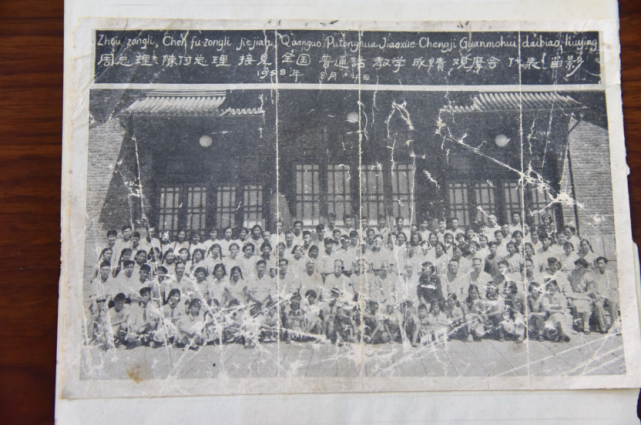 Zhou zongli, Chen fu-zongli jiejian Quanguo Putonghua Jiaoxue Chengji Guanmohui daibiao liuying
周总理 陈付总理 接见 全国 普通话 教学 成绩 观摩会 代表 留影
1958年 8月